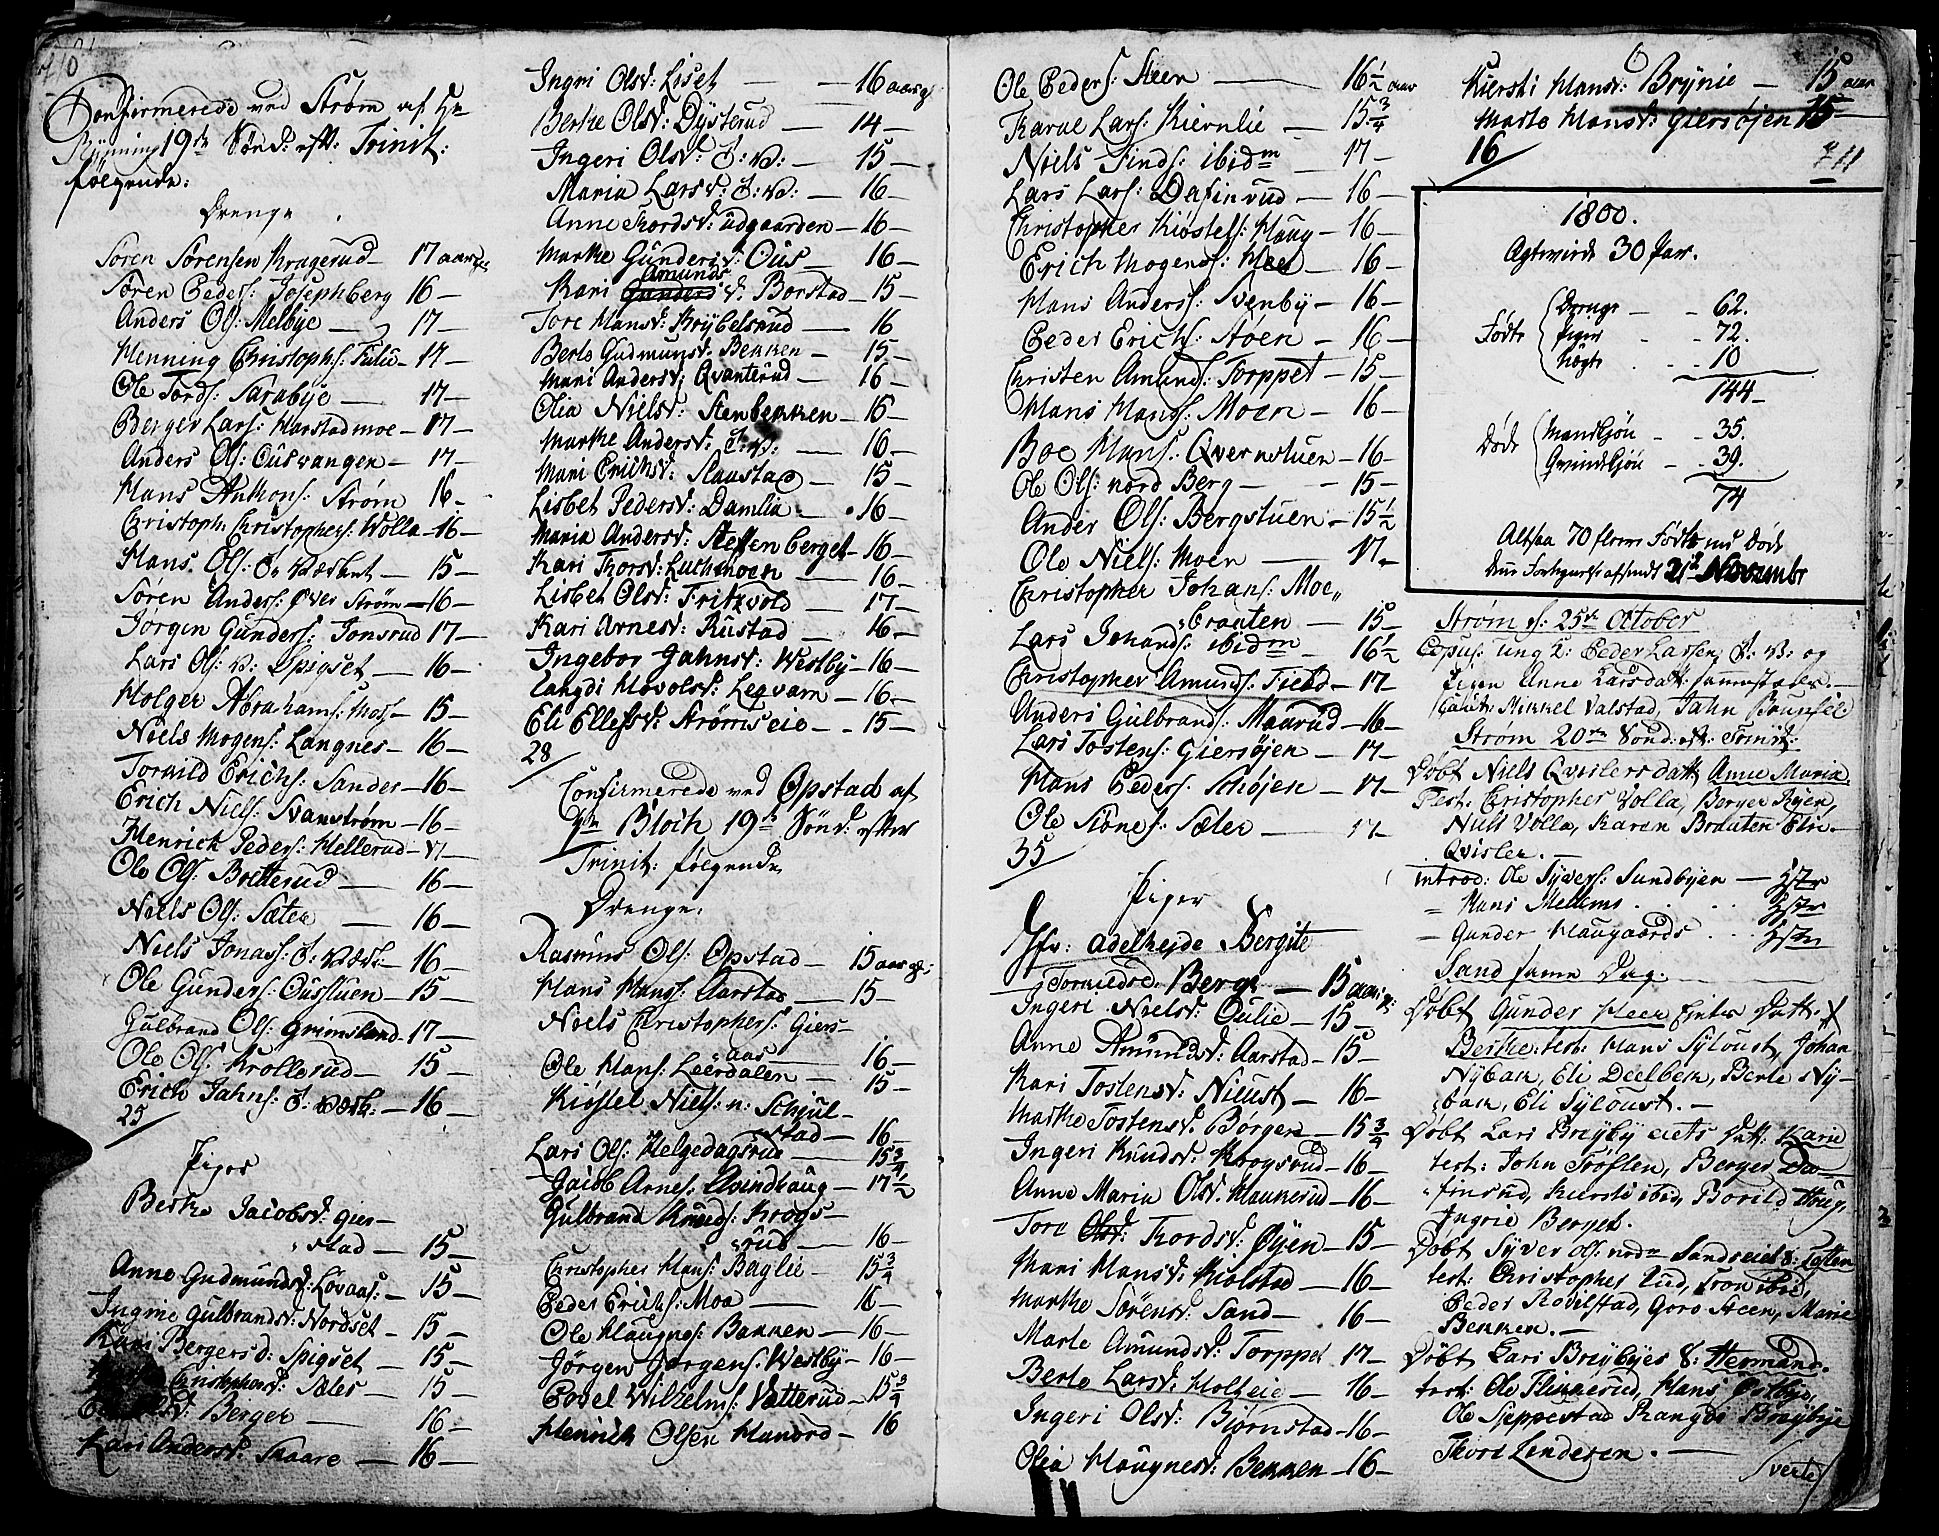 710
Confirmerede ved Strøm af Hr
19de Sønd: eft: Trinit:
følgende:
Drenge
Søren Sørensen Kragerud 17 aar
Søren Peders: Josephberg 16 —
Anders Ols: Melbye — 17 —
Henning Christophs: Fulu — 17 —
Ole Tords: Sarabye — 17 —
Berger Lars: Harstadmoe — 17 —
Anders Ols: Ousvangen — 17 —
Hans Anthons: Strøm 16 —
Christoph Christophers: Wolla — 16 —
Hans Ols: O:Værket — 15 —
Søren Anders: Øver Strøm — 16 —
Jørgen Gunders: Jonsrud 17 —
Lars Ols: v: Spigset — 16 —
Holger Abrahams: Moss — 15 —
Niels Mogens: Langnes — 16 —
Torkild Erichs: Sander — 16 —
Erich Niels: Svanstrøm — 16 —
Henrich Peders: Hellerud — 17 —
Ole Ols: Bretterud — 16 —
Niels Ols: Sæter — 16 —
Niels Jonas: O: Værk: — 16 —
Ole Gunders: Ousstuen — 15 —
Gulbrand Ols: Grimsland — 17 —
Ole Ols: Krollerud — 15 —
Erich Jahns: O: Værk: — 16 —
25
Piger
Berthe Jacobsd: Gier-
stad — 15 —
Anne Gudmundsd: Lovaas: — 15 —
Ingrine Gulbrandsd: Nordset — 15 —
Kari Bergersd: Spigset — 15 —
Christophersd: Sæter — 15 —
Olsd: Berger — 16 —
Kari Andersd: Skaare — 16 —
Ingri Olsd: Liset — 16 aar gl
Berthe Olsd: Dysterud — 14 —
Ingeri Olsd: O: V: — 15 —
Maria Larsd: O: V: — 16 —
Anne Thordsd: udgaarden — 16 —
Marthe Gundersd: Ous — 16 —
Amunds
Kari Gunders d: Borstad — 15 —
Tore Hansd: Krybelsrud — 16
Berte Gudmunsd: Bekken — 15 —
Mari Andersd: Qvanterud — 16 —
Olia Nielsd: Stenbekken — 16 —
Marthe Andersd: O: V: — 16 —
Mari Erichsd: Slaastad — 15 —
Lisbet Pedersd: Damlia — 16 —
Maria Andersd: Steffenberget — 16 —
Kari Thorsd: Luthmoen — 16 —
Lisbet Olsd: Fritzvold — 17 —
Kari Arnesd: Rustad — 16 —
Ingebor Jahnsd: Westby — 16 —
Langdi Hovolsd: Legvarn — 16 —
Eli Ellefsd: Strømseie — 15 —
28
Confirmerede ved Opstad af
Hr Bloch 19de Sønd: efter
Trinit: følgende
Drenge.
Rasmus Ols: Opstad — 15 aar gl:
Hans Hans: Aarstad — 15 —
Niels Christophers: Giers-
aas — 16 —
Ole Hans: Leerdalen — 15 —
Kiøstel Niels: n: Schjul-
stad — 16 —
Lars Ols: Helgedagsrud — 15 3/4
Jacob Arnes: Qvindhaug — 17 1/2
Gulbrand Knuds: Krogs-
rud — 16 —
Christopher Hans: Baglie — 15 3/4
Peder Erichs: Moe — 16 —
Ole Haugnes: Bakken — 16 —
Jørgen Jørgens: Westby — 16 —
Povel Wilhelms: Vatterud — 15 3/4
Henrich Olsen Hanord — 16
Ole Peders: Steen — 16 1/2 aar
Karue Lars: Kiernlie — 15 3/4
Niels Finds: ibidm — 17 —
Lars Lars: Dafinrud — 16 —
Christopher Kiøstels: Haug — 16 —
Erich Mogens: Heer — 16 —
Hans Anders: Svenby — 16 —
Peder Erichs: Aoen — 16 —
Christen Amunds: Torppet — 15 —
Hans Hans: Moen — 16 —
Boe Hans: Qvernstuen — 16 —
Ole Ols: nord Berg — 15 —
Ander Ols: Bergstuen — 15 1/2
Ole Niels: Moen — 17 —
Christopher Johans: Moe,,
braaten — 15 —
Lars Johands: ibidm — 16 1/2
Christopher Amunds: Field — 17 —
Anders Gulbrands: Maarud — 16 —
Lars Tostens: Giersøjen — 17 —
Hans Peders: Schøjen — 17 —
Ole Siønes: Sæter — 17 —
35
Piger
Jfr: Adelhejde Bergite
Torkildsd: Berge — 15 aar gl:
Ingeri Nielsd: Oulie — 15 —
Anne Amundsd: Aarstad — 15 —
Kari Tostensd: Nieust — 16 —
Marthe Tostensd: Børgen — 15 3/4
Ingeri Knudsd: Krogsrud — 16 —
Anne Maria Olsd: Haukerud — 16 —
Tore Olsd: Thordsd: Øyen — 15 —
Mari Hansd: Kiolstad — 16 —
Marthe Sørensd: Sand — 16 —
Marte Amundsd: Torppet 17 —
Berte Larsd: Holteie — 16 —
Ingeri Olsd: Bjørnstad — 16 —
Olia Haugnesd: Bekken — 16 —
Kiersti Hansd: Brynie — 15 aar
Marte Hansd: Giersøjen 15 —
16
711
1800.
Agtevirde 30 Par.
Fødte
Drenge — 62.
Piger — 72.
Uægte — 10
144 —
Døde
Mandkjøn — 35.
Qvindekjøn — 39.
74
Altsaa 70 flere Fødte end Døde
Den Fortegnelse afsendt 21de November
Strøm d: 25de October
Copul: ung K: Peder Larsen O: V: og
Pigen Anne Larsdatt: sammesteds. —
Caut: Mikkel Valstad, Jahn Brunsel
Strøm 20de Sønd: eft: Trinit:
Døbt Niels Qvislers datt Anne Maria
Test: Christopher Volla, Berger Ryen,
Niels Volla, Karen Braaten Elie
Qvisler. —
Introd: Ole Syvers: Sundbyen —
= Hans Mellems
— Gunder Haugaards
Sand samme Dag.
Døbt Gunder Heer Eiets Datt.
Berthe: test: Hans Syloust, Johan
Nybak, Eli Deelbek, Berte Ny-
bak, Eli Syloust. —
Døbt Lars Brøyby eiets Datt: Karie
test: John Trøften, Berger Da-
finrud, Kiersti ibid, Borild Haug,
Ingrie Berget.
Døbt Syver Ols: nordn Sandseiet S: Tosten
test: Christopher Lud, Fron ibid,
Peder Rovilstad, Goro Steen, Marie
Bekken. —
Døbt Lars Brøybyes S: Hermand.
test: Ole Flikkerud, Hans Østbye,
Ole Seppestad Rangdi Brøybye
Thore Lenderen. —
verte